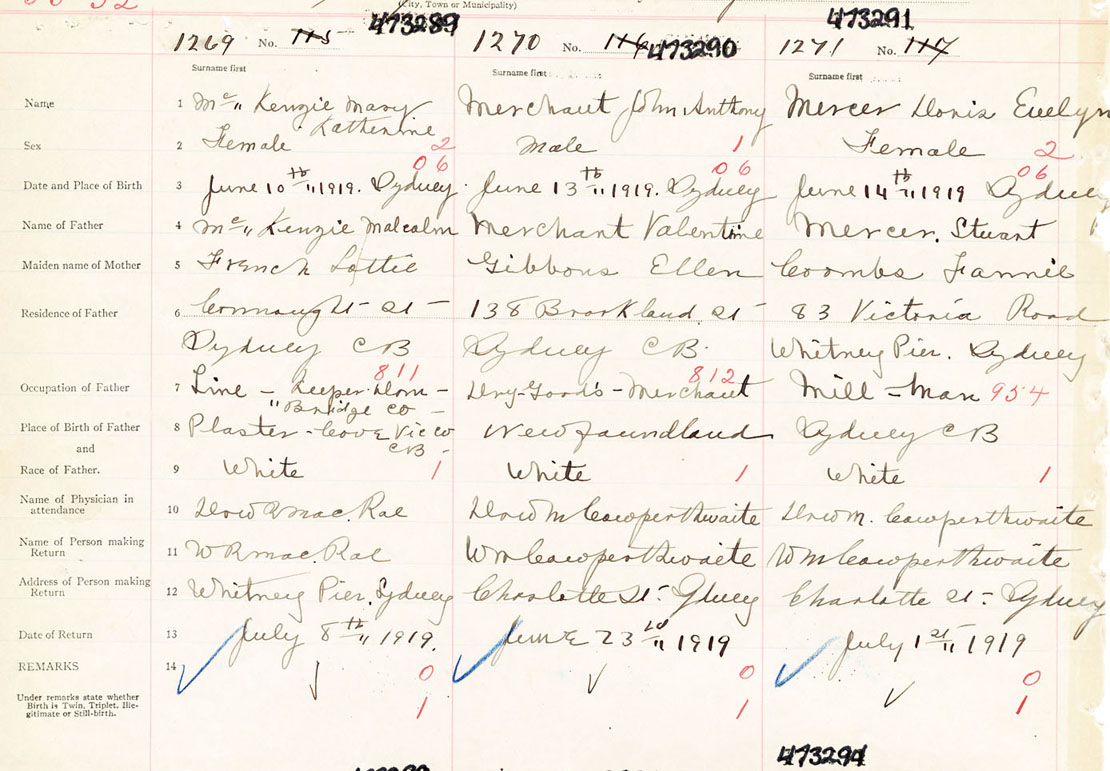 (City, Town or Municipality)
473289 473290 473291
1269 No. 115 1270 No. 116 1271 No. 117
Surname first Surname first Surname first
Name 1 Mc" Kenzie Mary Merchant John Anthony Mercer Doris Evelyn
Katherine
Sex 2 Female 2 Male 1 Female 2
06 06 06
Date and Place of Birth 3 June 10th " 1919. Sydney. June 13th " 1919. Sydney June 14th " 1919 Sydney
Name of Father 4 Mc" Kenzie Malcolm Merchant Valentine Mercer. Stuart
Maiden name of Mother 5 French Lottie Gibbons Ellen Coombs Fannie
Residence of Father 6 Connaught St 138 Brookland St 83 Victoria Road
Sydney CB Sydney CB. Whitney Pier. Sydney
811 812
Occupation of Father 7 Line - Keeper. Dom - Dry-Goods - Merchant Mill - Man 954
" Bridge Co -
Place of Birth of Father 8 Plaster - Cove Vic Co Newfoundland Sydney CB
and CB -
Race of Father. 9 White 1 White 1 White 1
Name of Physician in
attendance 10 MacRae Cowperthwaite M. Cowperthwaite
Name of Person making
Return 11 W R MacRae Wm Cowperthwaite Wm Cowperthwaite
Address of Person making
Return 12 Whitney Pier. Sydney Charlotte St - Sydney Charlotte St - Sydney
Date of Return 13 July 8th " 1919. June 23rd " 1919 July 1st " 1919
REMARKS 14 0 0 0
Under remarks state whether
Birth is Twin, Triplet, Ille-
gitimate or Still-birth. 1 1 1
473294